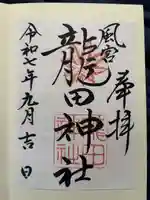 奉拝
風宮
龍田神社
令和七年九月吉日